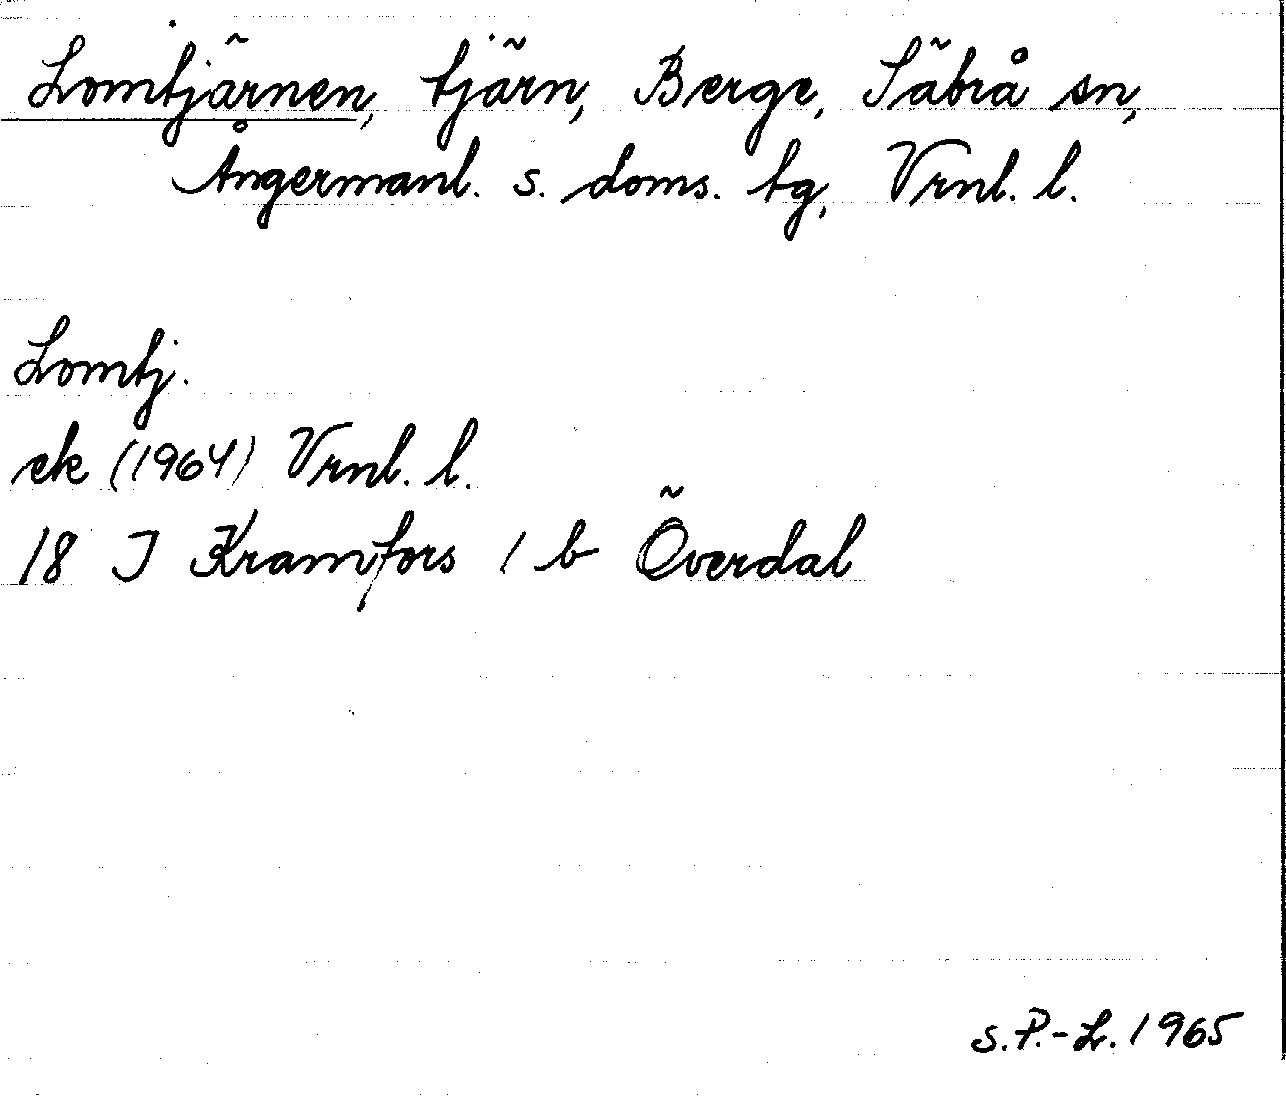 Lomtjärnen, tjärn, Berge, Säbrå sn,
Ångermanl. s. doms. tg, Vrnl. l.
Lomtj.
ek (1964) Vrnl. l.
18 J Kramfors 1 b Överdal
S.P.-L. 1965